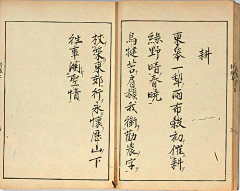 耕
東皐一犂雨布穀初催耕
緑野暗春曉
烏犍苦肩赬我銜勸農字
杖策東郊行永懷歴山下
往事關聖情